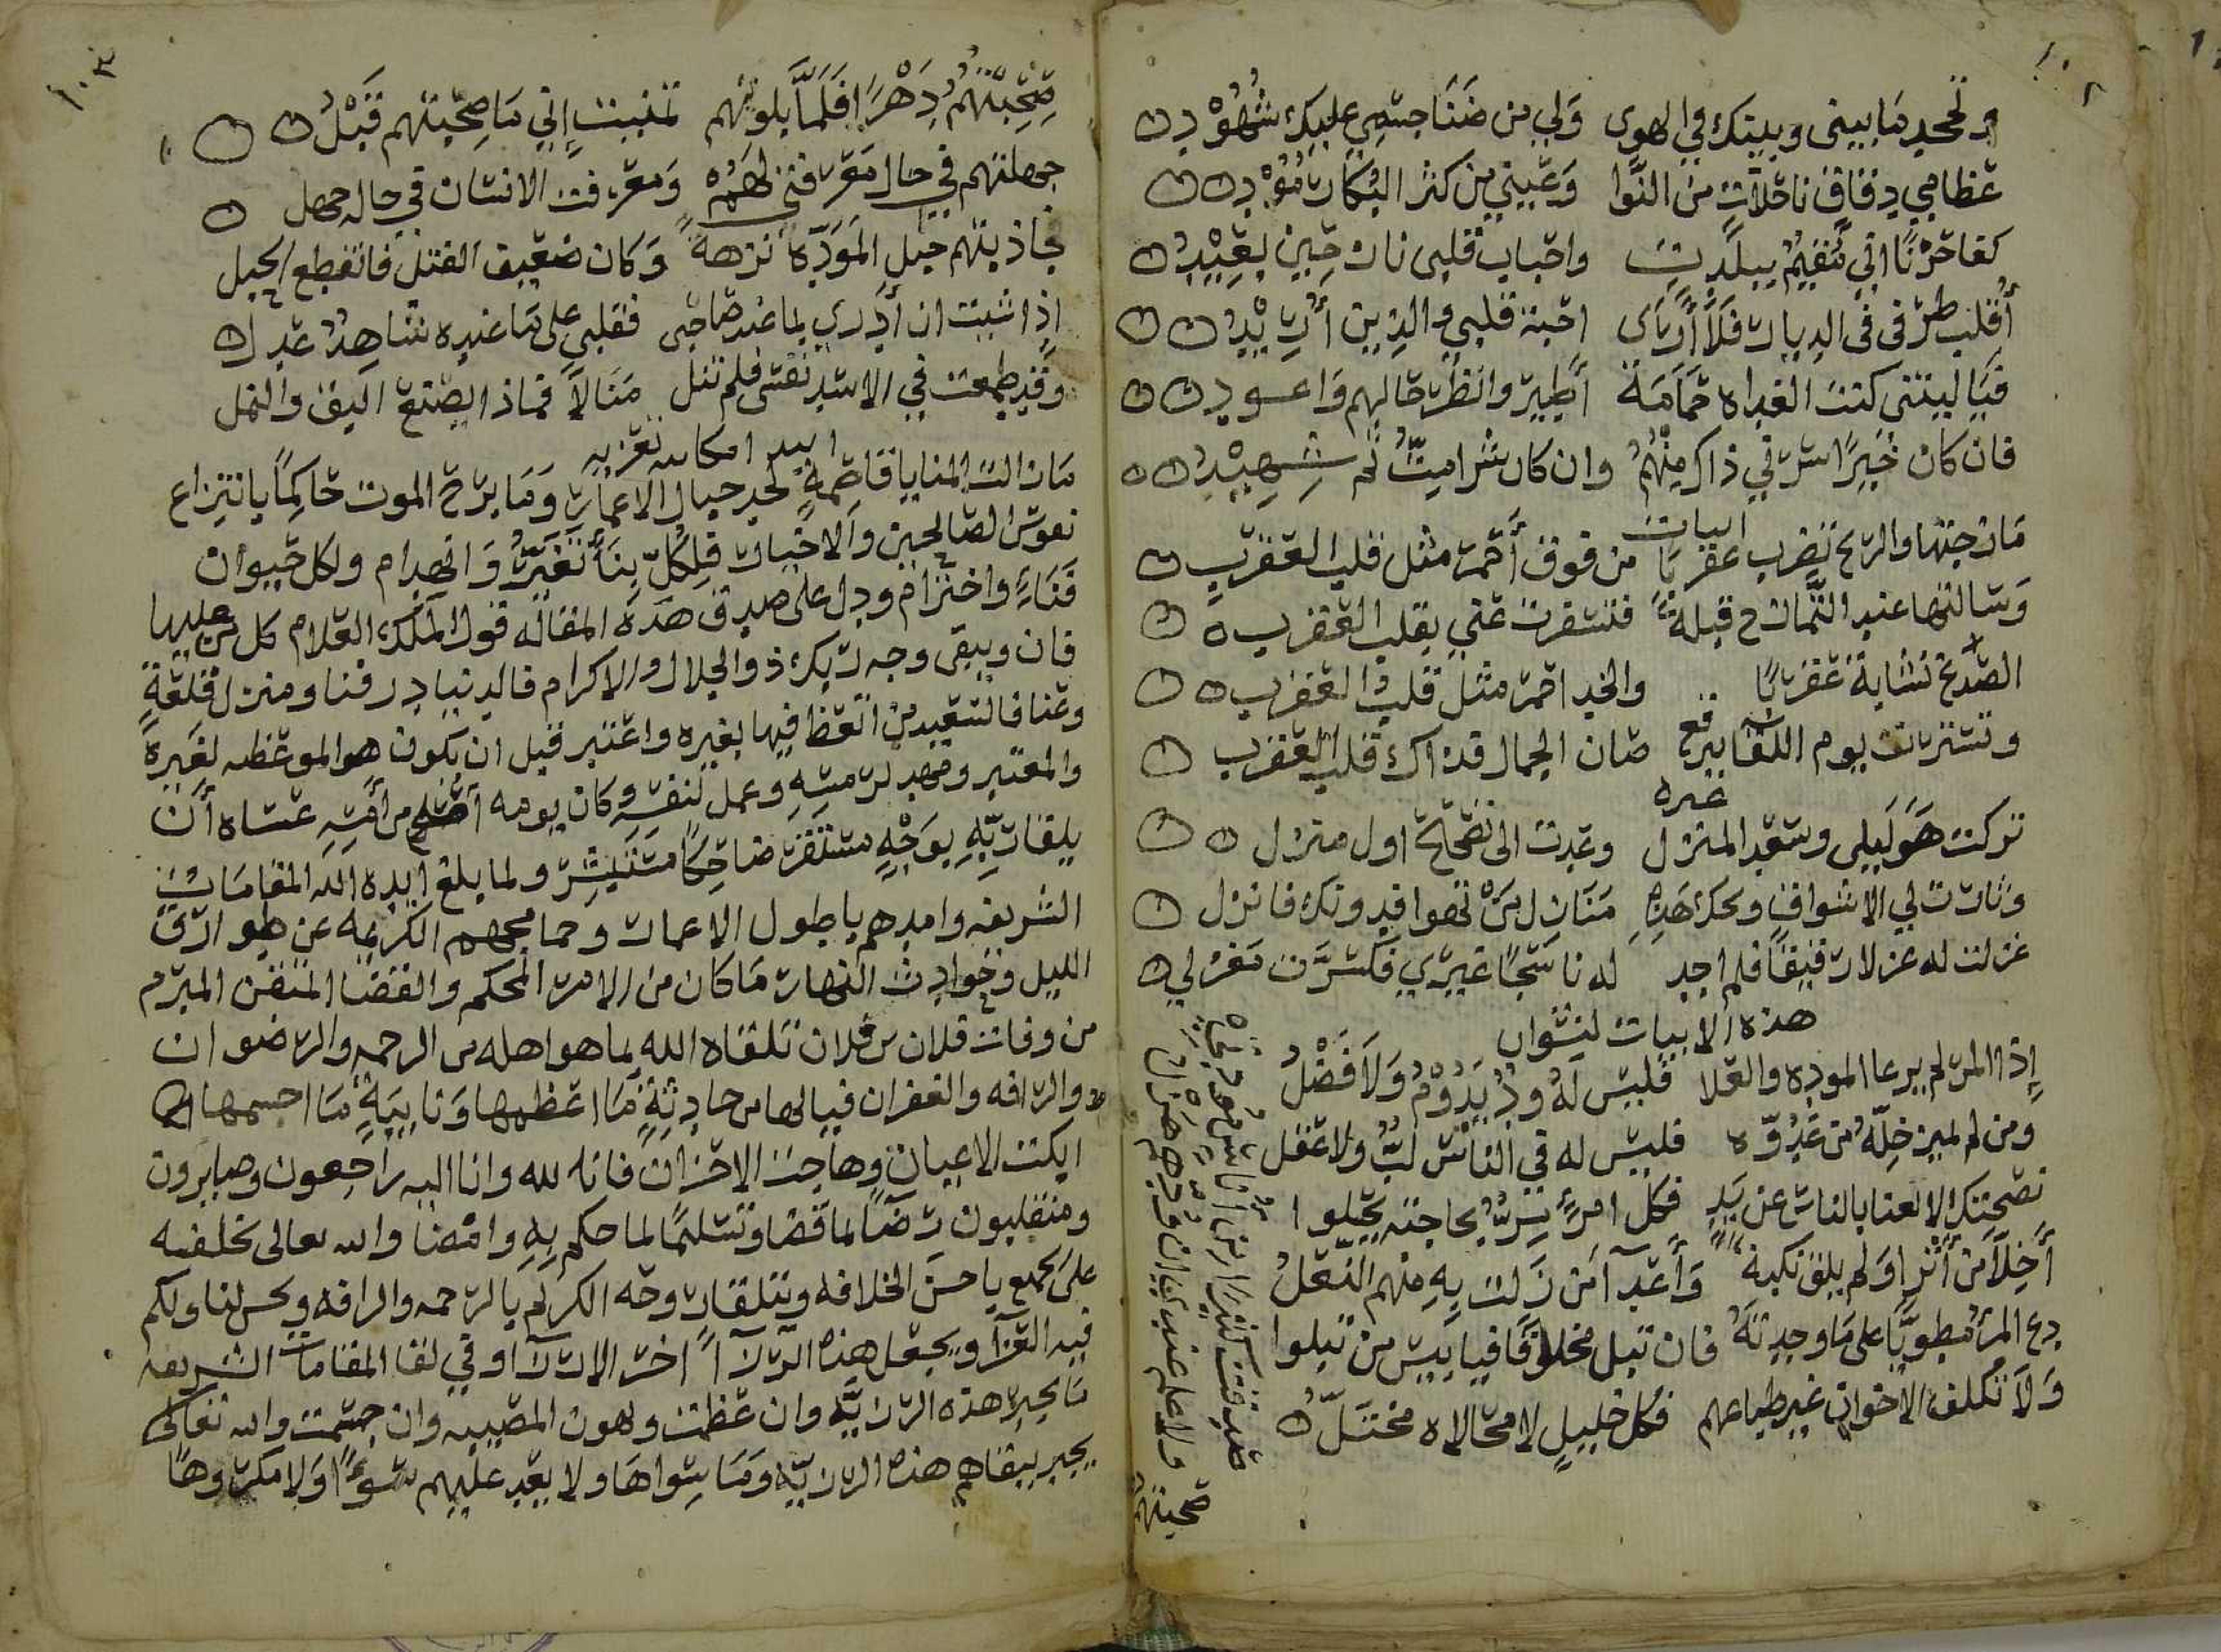 ١٠٢
وتجحد ما بيني وبينك في الهوى ولي من ضنا جسمي عليك شهود
عظامي دقاق ناحلات من النوا وعيني من كثر البكا
كفا حزنا اني مقيم ببلدت واحباب قلبي نازحين بعيد
أقلب طرفي في الديار فلا أرى احبة قلبي والذين أريد
فيا ليتني كنت الغداه حمامة أطير وانظر حالهم واعود
فان كان خيرا سرني ذاك منهم وان كان شرا ميت ثم شهيد
ابيات
مازحتها والريح تضرب عقربا من فوق أحمر مثل قلب العقرب
وسالتها عند التمازح قبلة فتسترت عني بقلب العقرب
الصدغ تشابه عقربا والخد احمر مثل قلب العقرب
وتسترت يوم اللقا ببرقع صان الجمال قدراك قلب العقرب
غيره
تركت هوى ليلى وسعد المنزل وعدت الى تصحيح اول منزل
ونادت لي الاشواق ويحك هذه منازل من تهوا فدونك فانزل
غزلت له غزلا رقيقا فلم اجد له ناسجا غيري فكسرت مغزلي
هذه الابيات لنشوان
إذا المر لم يرعا الموده والعلا فليس له ود يدوم ولا فضل
ومن لم يميز خله من عدوه فليس له في الناس لب ولا عقل
نصحتك الالعنا بالناس عن يد فكل امرئ بر بحاجته يخلوا
أخلا من أثرا ولم يلق نكبة وأعدآ من زلت به منهم النعل
دع المرء مطويا على ما وجدته فان تبل مخلوقا فيا بيس من تبلوا
ولا تكلف الاخوان غير طباعهم فكل خليل لا محالاه مختل
صحبتهم
١٠٣
صحبتهم دهرا فلما بلوتهم تمنيت إني ما صحبتهم قبل
جهلتهم في حال معرفتي لهم ومعرفت الانسان في حاله جهل
جاذبتهم حبل المودة نزهة وكان ضعيف الفتل فانقطع الحبل
إذا شيت ان أدري بما عند صاحبي فقلبي على ما عنده شاهد عدل
وقد طمعت في الاسد نفسي فلم تنل منالا فماذا يصنع البق والنمل
تعزيه
مازالت المنايا قاصمة لحد حبال الاعمار وما برح الموت حاكما بانتزاع
نفوس الصالحين والاخيار فلكل بنا تغير وانهدام ولكل حيوان
فناء واخترام ودل على صدق هذه المقاله قول الملك العلام كل من عليها
فان ويبقى وجه ربك ذو الجلال والاكرام فالدنيا در فنا ومنزل قلعة
وعنا فالسعيد من اتعظ فيها بغيره واعتبر قبل ان يكون هو الموعظه لغيره
والمعتبر ومهد لرمسه وعمل لنفسه وكان يومه اصلح من أمسه عساه أن
يلقا ربه بوجه مسفر ضاحكا مستبشر ولما بلغ ايده الله المقامات
الشريفه وامدهم باطول الاعمار وحما مجهم الكريمه عن طوارق
الليل وحوادث النهار ما كان من الامر المحكم والقضا المتقن المبرم
من وفات فلان بن فلان تلقاه الله بما هو اهله من الرحمه والرضوان
والرافه والغفران فيا لها من حادثة ما اعظمها ونايبة ما اجسمها
ابكت الاعيان وهاجت الاحزان فانا لله وانا اليه راجعون وصابرون
ومنقلبون رضا لما قضا وتسلما لما حكم به وامضا والله تعالى يخلفه
على الجميع باحسن الخلافه ويتلقا روحه الكريم بالرحمه والرافه ويحسن لنا ولكم
فيه العزآ ويجعل هذه الرزآ اخر الارزآ وفي لقا المقامات الشريفه
ما يجبر هذه الرزيه وان عظمت ويهون المصيبه وان جسمت والله تعالى
يجبر ببقاهم هذه الرزيه وما سواها ولا يعد عليهم سوءا ولا مكروها